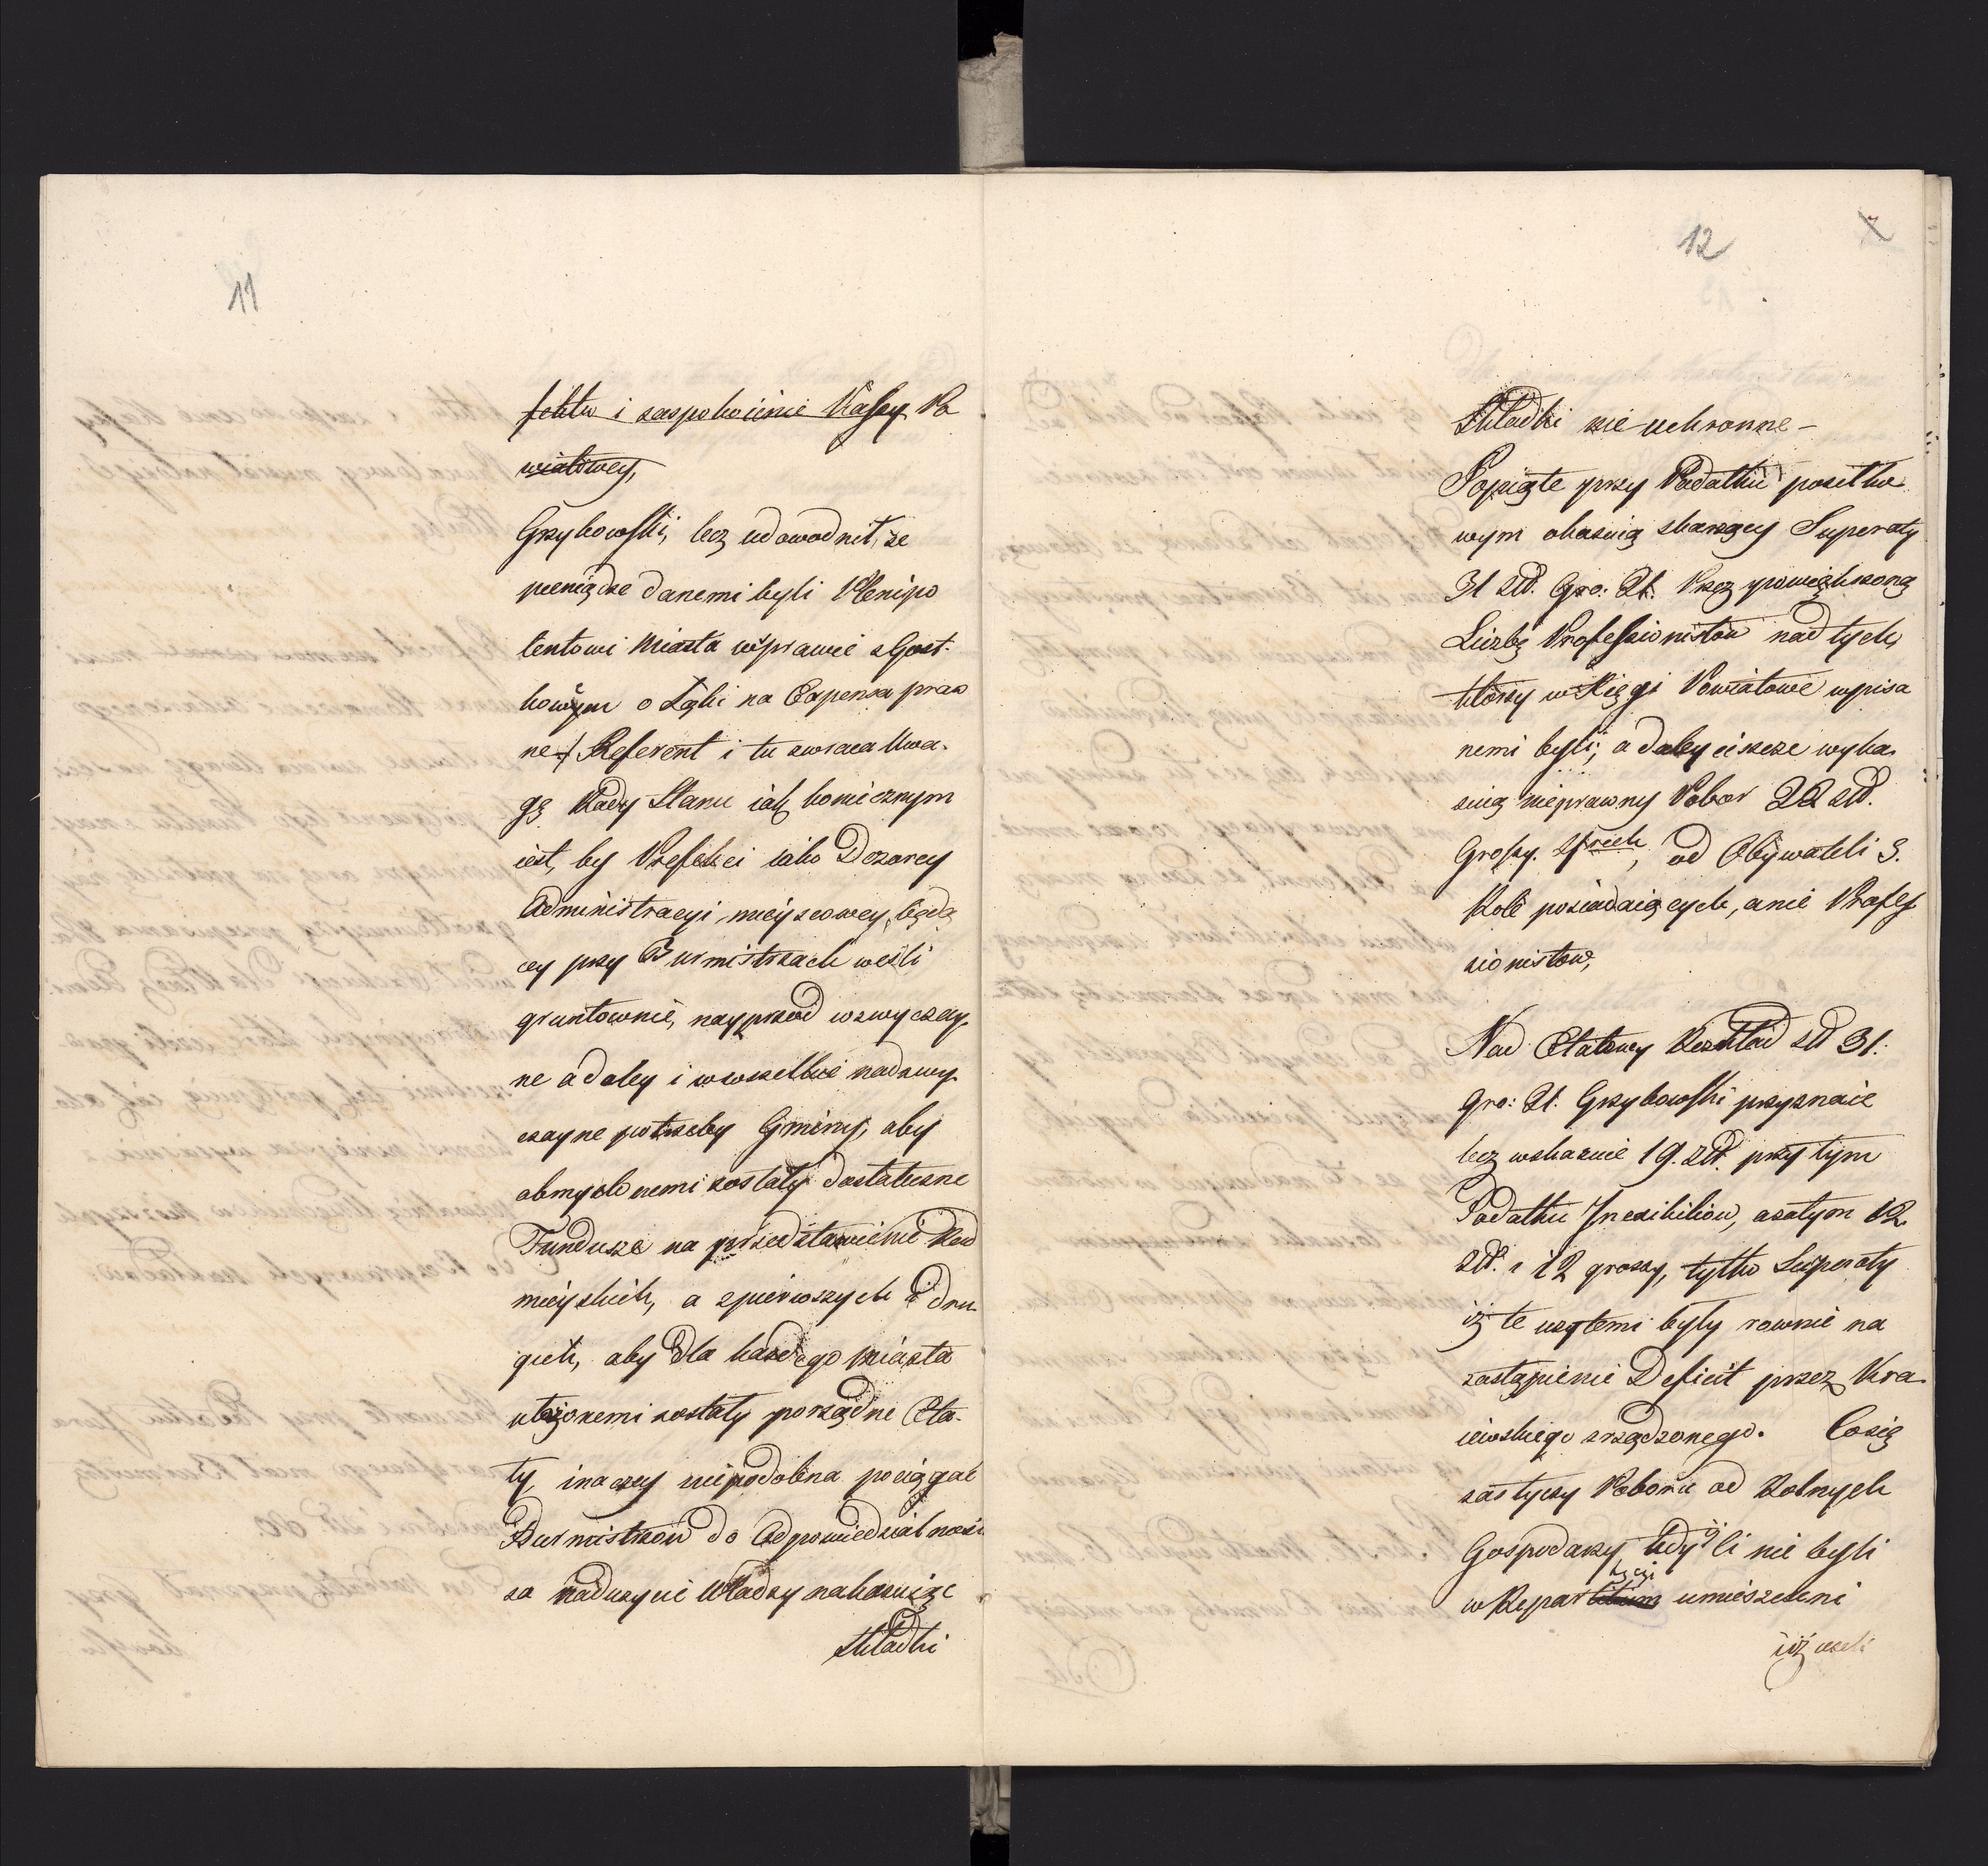 11
fektu i zaspokoienie Kassy Po
wiatowey,
Grzybowski, lecz udowodnił, że
pieniądze danemi byli Plenipo
tentowi Miasta w sprawie z Gost-
kowskim o Łąki na Expensa praw
ne Referent i tu zwraca Uwa-
gę Rady Stanu iak koniecznym
iest, by Prefekci iako Dozorcy
Administracyi mieyscowey, będą
cy przy Burmistrzach weszli
gruntownie, nayprzód w zwyczay,
ne a daley i w wszelkie nadzwy-
czayne potrzeby Gminy, aby
obmyślonemi zostały dostateczne
Fundusze na przedstawienie Rad
mieyskich, a z pierwszych i dru-
gich, aby dla każdego miasta
ułożonemi zostały porządne Eta-
ty, inaczey niepodobna pociągać
Burmistrzów do Odpowiedzialności
za nadużycie Władzy nakazuiąc
Składki
12
7
Składki nie uchronne -
Popięte przy Podatku posiłko
wym okazuią skarżący Superaty
31 złł. gro: 21. Przez powiększoną
Liczbę Professionistów nad tych,
którzy w Xięgi Powiatowe wpisa
nemi byli; a daley ieszcze wyka-
zuią nieprawny Pobor 22 złł.
Groszy. trzech, od Obywateli 3.
Role posiadaiących, a nie Profes
sionistów,
Nad Etatowy Rozkład złł 31.
gro: 21. Grzybowski przyznaie
lecz wskazuie 19. złł. przy tym
Podatku Inexibiliow, a zatym 12
złł. i 12 groszy, tylko Superaty
iż te użytemi były rownie na
zastąpienie Deficit przez Kra-
iewskiego zrządzonego. Co się
zaś tyczy Poboru od Rolnych
Gospodarzy, kdy ili nie byli
w Repartycyi umieszczeni
iż